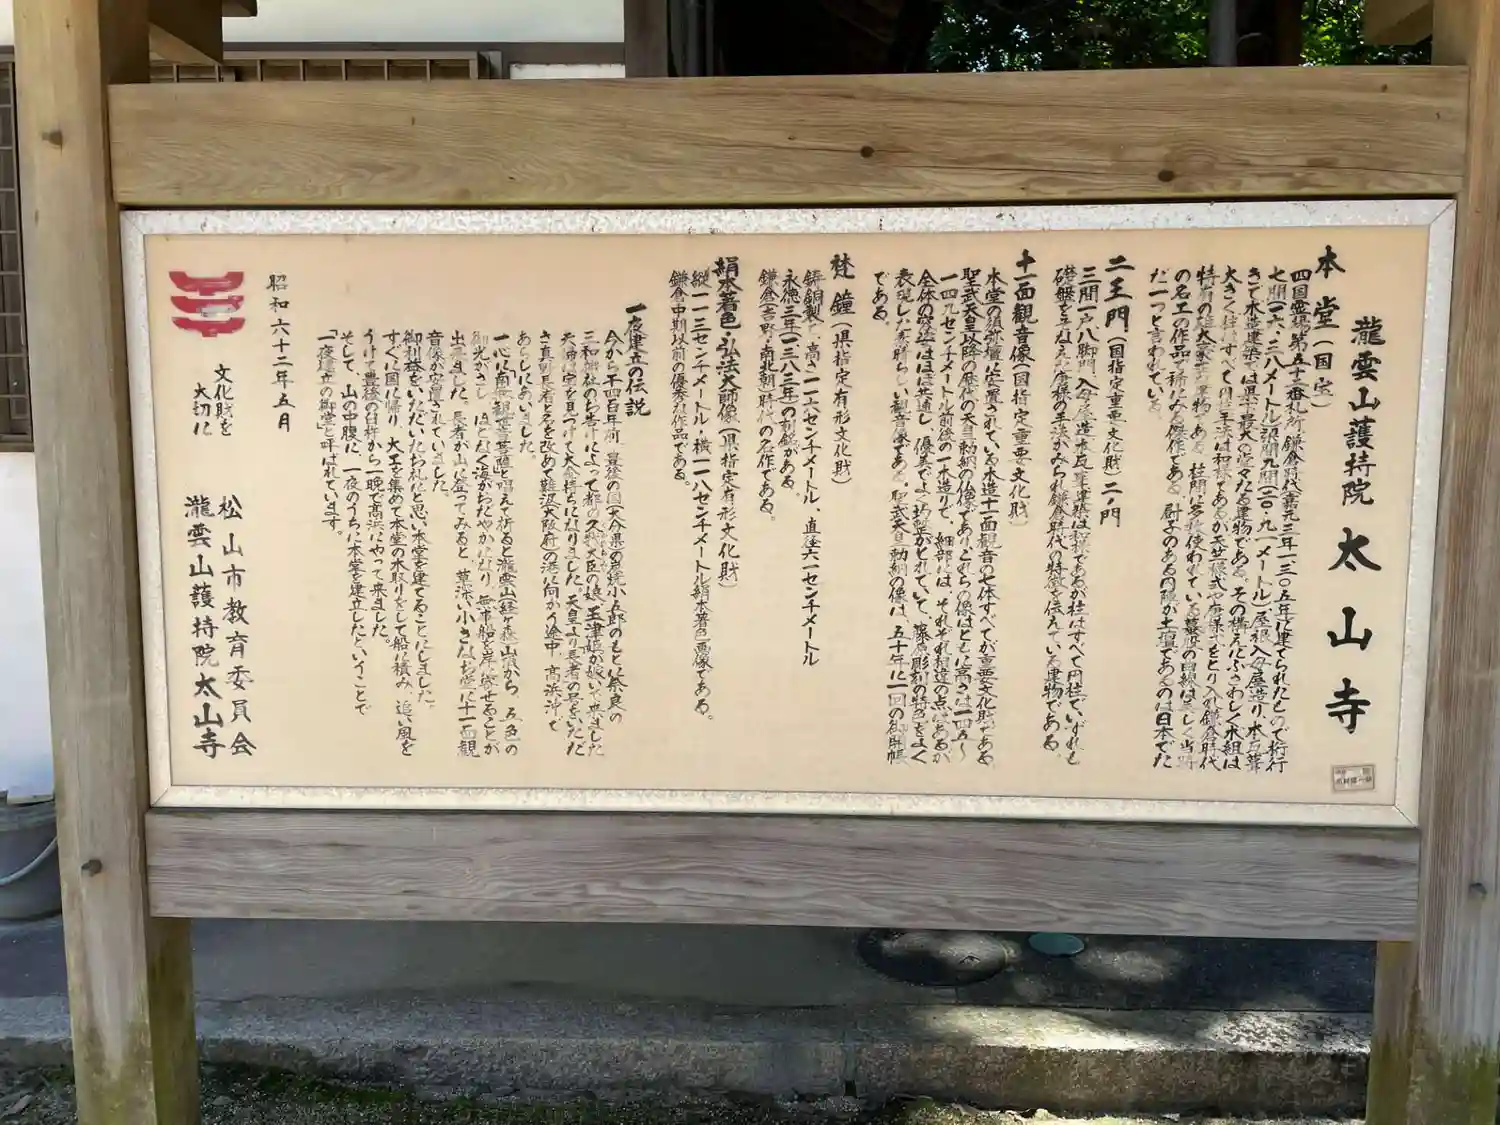 瀧雲山護持院 太山寺
本堂（国宝）
四国霊場第五十二番札所、鎌倉時代（嘉元三年一三〇五年）に建てられたもので桁行
七間（一六・三八メートル）梁間九間（二〇・九一メートル）屋根入母屋造り本瓦葺
きで木造建築では県下最大の堂々たる建物である。その構えにふさわしく木組は
大きく柱はすべて円
の名工の作品で稀にみる傑作である。厨子のある内陣が土壇であるのは日本でた
だ一つと言われている。
二王門（国指定重要文化財）二の門
三間一戸八脚門、入母屋造本瓦葺建築は和様であるが柱はすべて円柱でいずれも
礎盤をそなえた唐様の手法がみられ鎌倉時代の特徴を伝えている建物である。
十一面観音像（国指定重要文化財）
本堂の須弥壇に安置されている木造十一面観音の七体すべてが重要文化財である
聖武天皇以降の歴代の天皇勅納の仏像でありこれらの像はともに高さは一四五〜
一四九センチメートル前後の一木造りで、細部には、それぞれ相違の点はあるが
全体の姿態はほぼ共通し、優美でよく均整がとれていて、藤原彫刻の特色をよく
表現した素晴らしい観音像である。聖武天皇勅納の像は、五十年に一回の御開帳
である。
梵鐘（県指定有形文化財）
鋳銅製で高さ一一六センチメートル、直径六一センチメートル
永徳三年（一三八三年）の刻銘がある。
鎌倉（吉野・南北朝）時代の名作である。
絹本著色・弘法大師像（県指定有形文化財）
縦一一三センチメートル・横一一八センチメートル絹本著色画像である。
鎌倉中期以前の優秀な作品である。
一夜建立の伝説
今から千四百年前、豊後の国（大分県）の炭焼小五郎のもとに奈良の
三和神社のお告げによって都の久我大臣の娘、玉津姫が嫁いで来ました
夫婦は宝を見つけて大金持ちになりました。天皇より長者の号をいただ
き真野長者と名を改めて難波（大阪府）の港に向かう途中、高浜沖で
あらしにあいました。
一心に「南無観世音菩薩」と唱えて祈ると瀧雲山（経ヶ森）山頂から、五色の
御光がさし、ほどなく海がおだやかになり、無事船を岸に寄せることが
出来ました。長者が山に登ってみると、草深い小さなお堂に十一面観
音像が安置されていました。
御利益をいただいたお礼にと思い本堂を建てることにしました。
すぐに国に帰り、大工を集めて本堂の木取りをして船に積み、追い風を
うけて豊後の臼杵から一晩で高浜にやって来ました。
そして、山の中腹に、一夜のうちに本堂を建立したということで
「一夜建立の御堂」と呼ばれています。
昭和六十二年五月
文化財を
大切に
松山市教育委員会
瀧雲山護持院太山寺